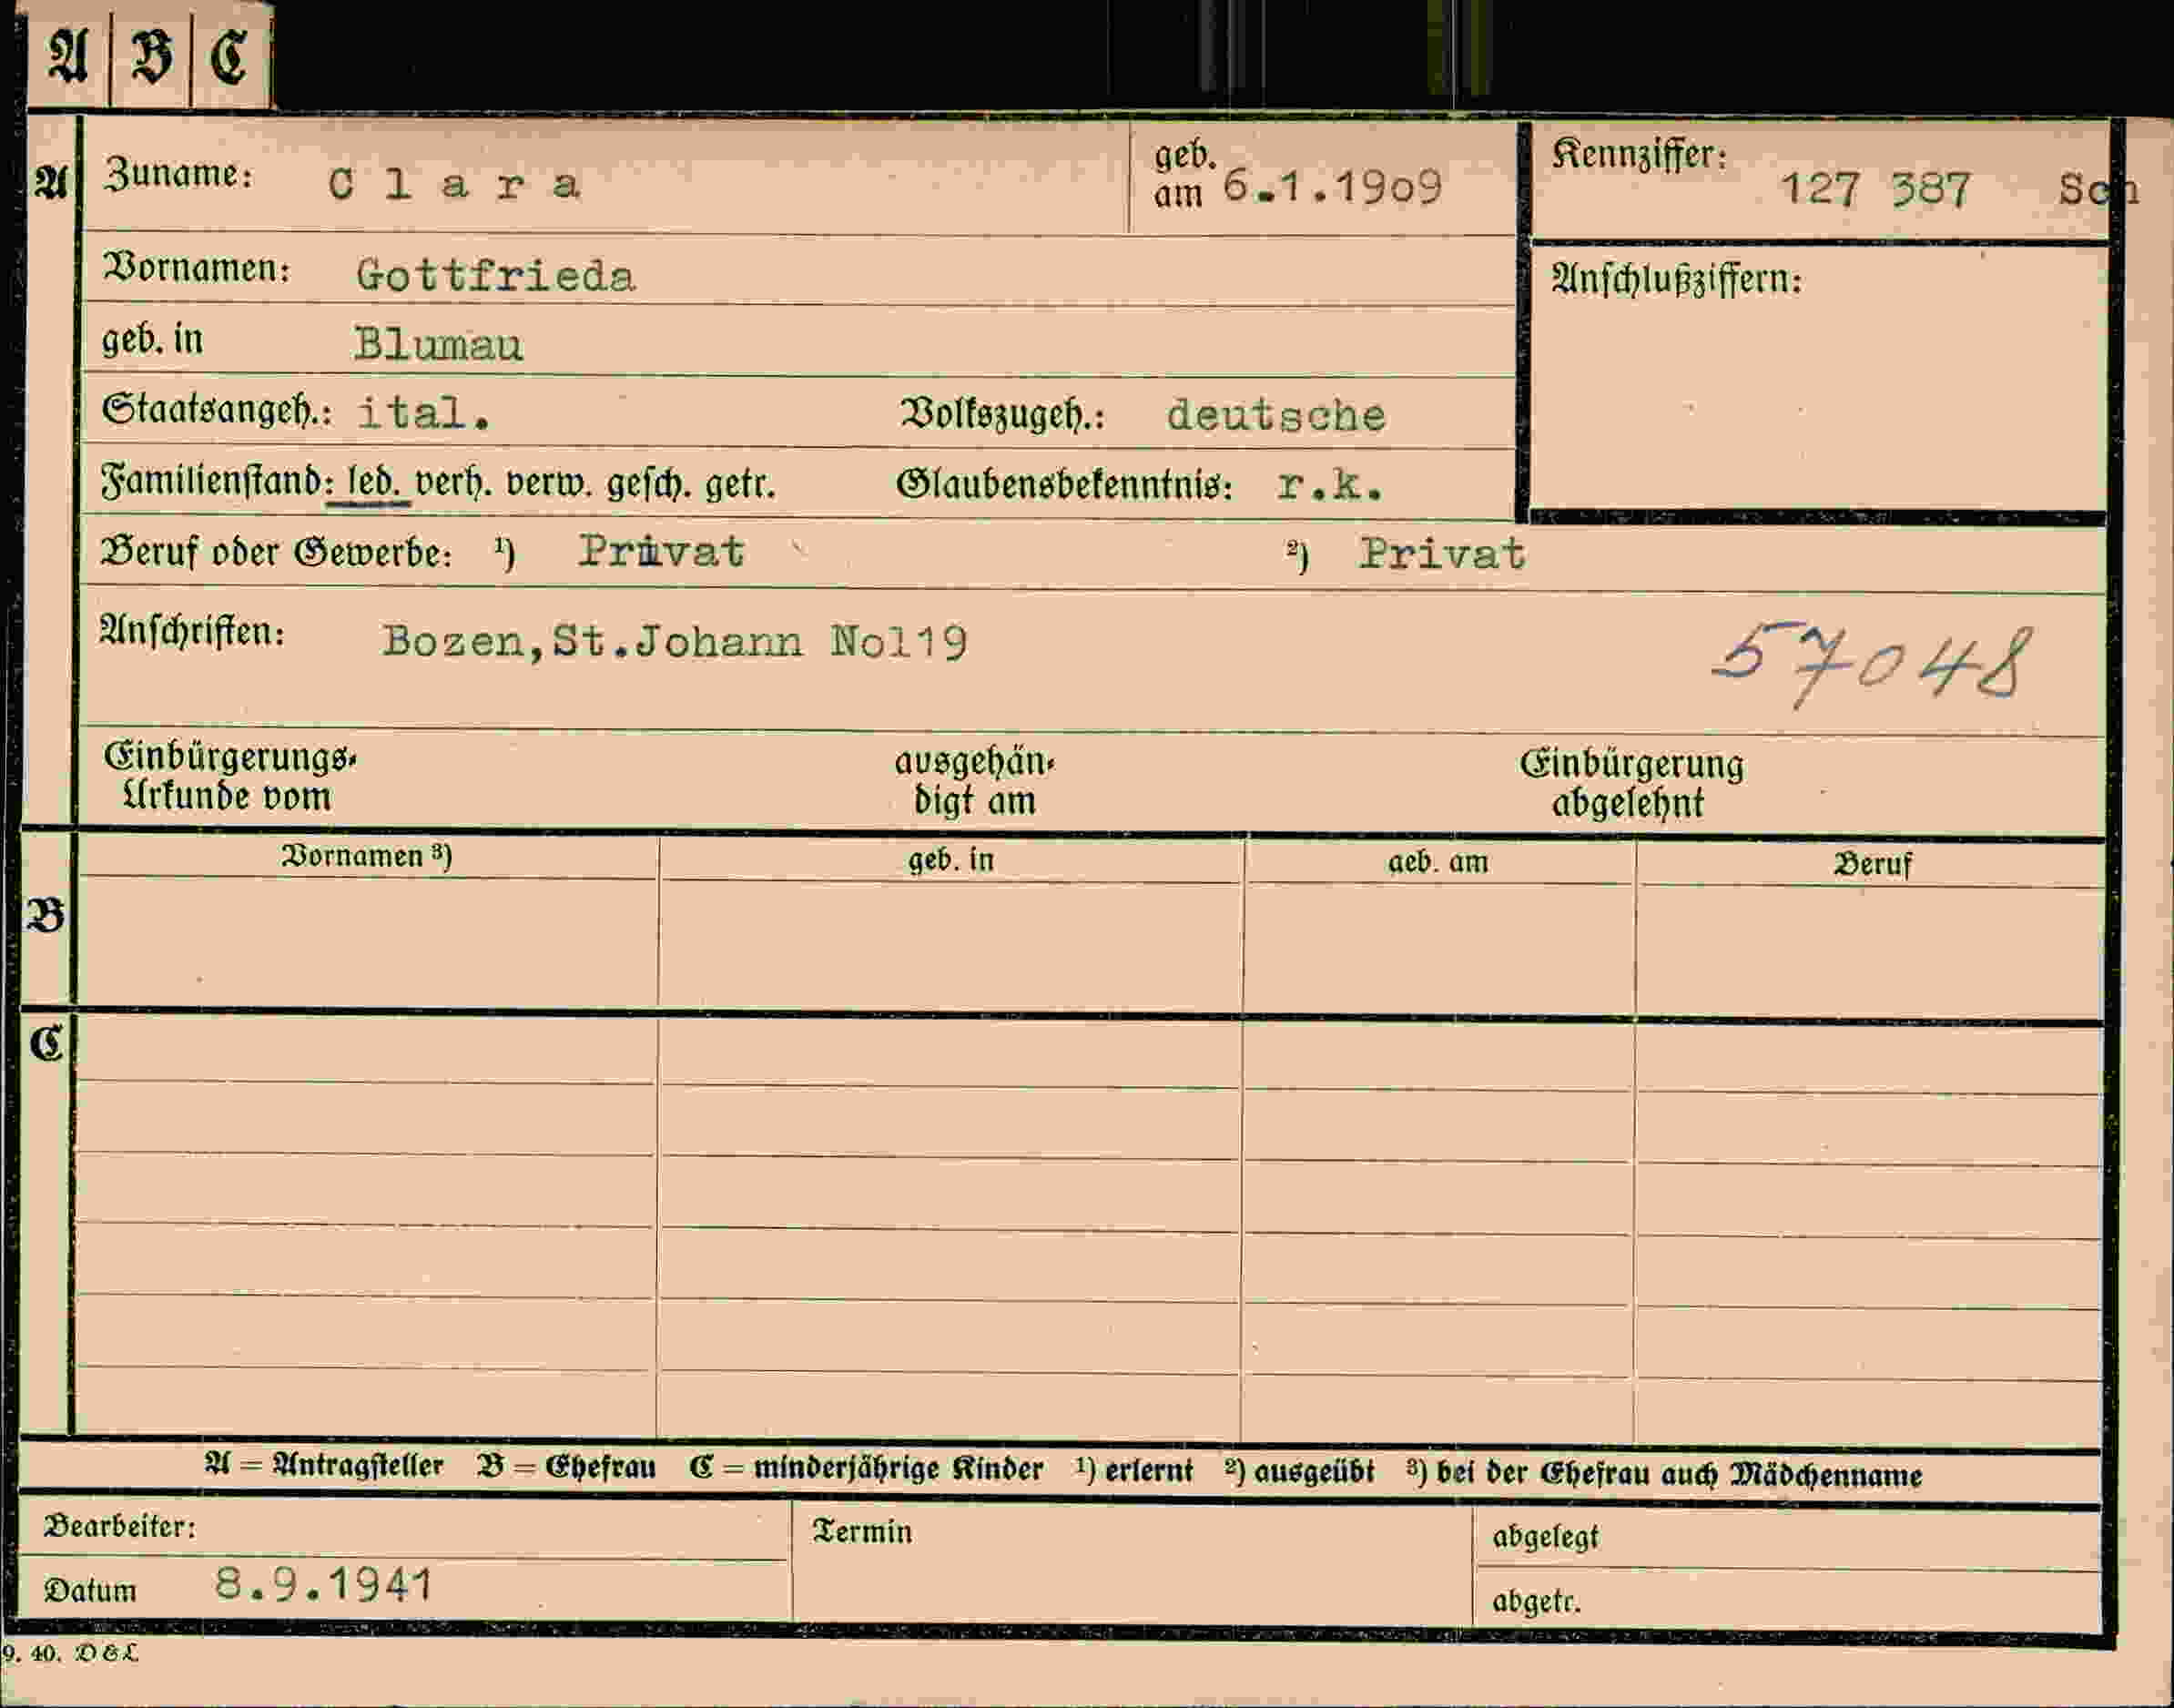 A B C
A Zuname: Clara geb. am 6.1.1909 Kennziffer: 127 387 Sch
Vornamen: Gottfrieda Anschlußziffern:
geb. in Blumau
Staatsangeh.: ital. Volkszugeh.: deutsche
Familienstand: led. verh. verw. gesch. getr. Glaubensbekenntnis: r.k.
Beruf oder Gewerbe: ¹) Privat ²) Privat
Anschriften: Bozen,St.Johann No119 57048
Einbürgerungs-Urkunde vom ausgehän-digt am Einbürgerung abgelehnt
Vornamen ³) geb. in geb. am Beruf
B
C
A = Antragsteller B = Ehefrau C = minderjährige Kinder ¹) erlernt ²) ausgeübt ³) bei der Ehefrau auch Mädchenname
Bearbeiter: Termin abgelegt
Datum 8.9.1941 abgetr.
9. 40. D & L